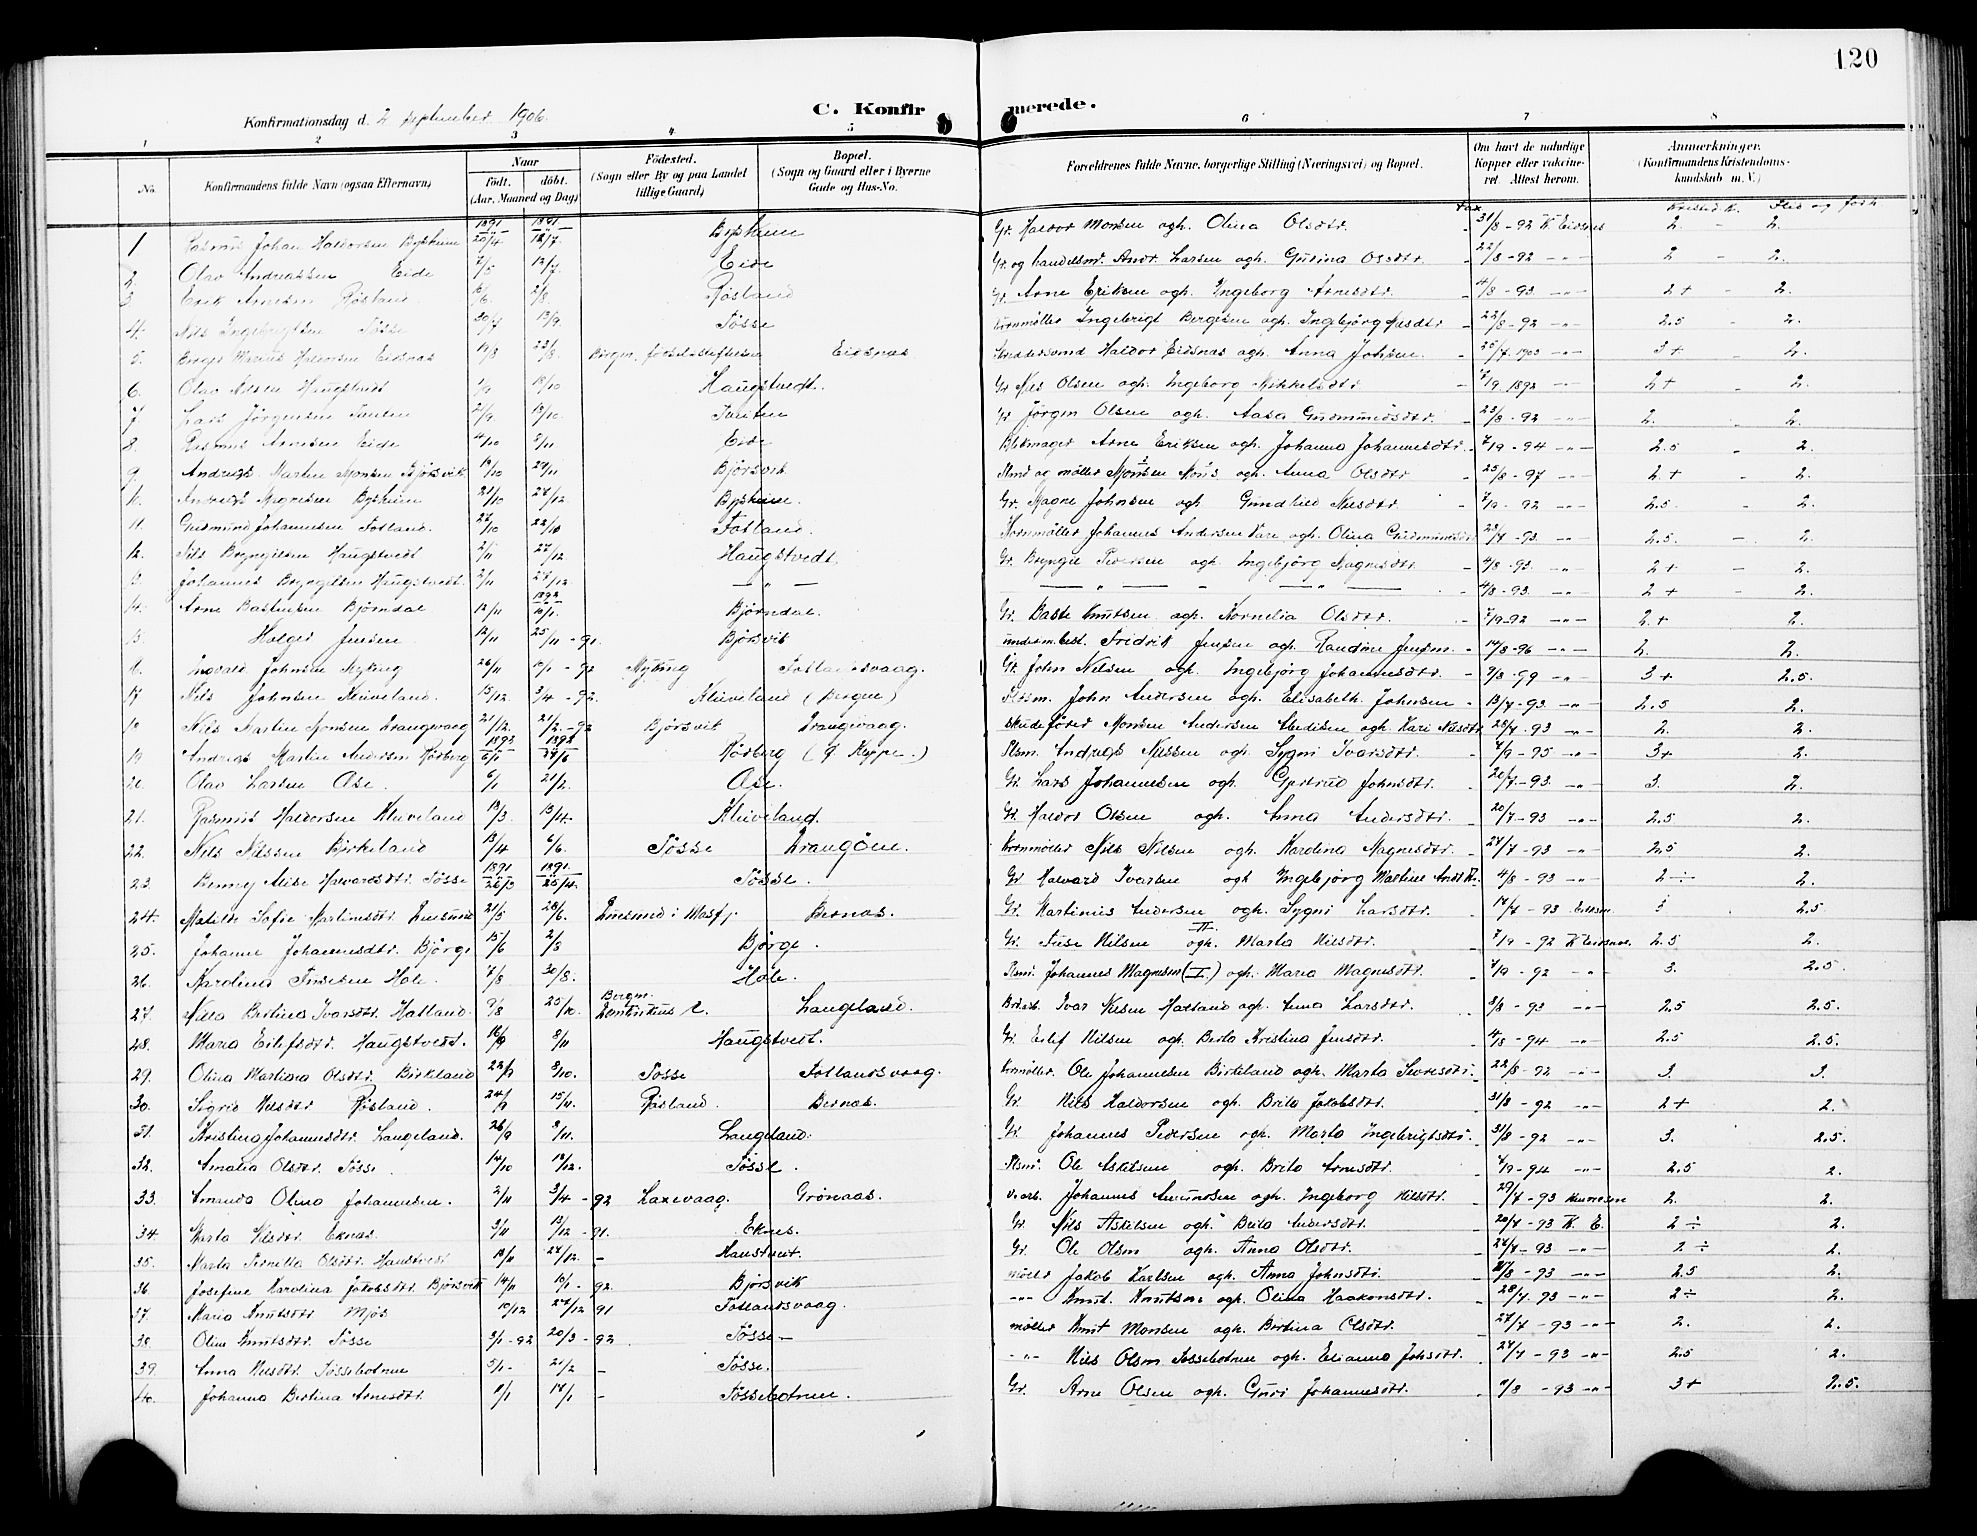 120
Konfirmationsdag d. 2 september 1906. C. Konfirmerede.
1 2 3 4 5 6 7 8
No. Konfirmandens fulde Navn (ogsaa Efternavn) Naar født. døbt. (Aar, Maaned og Dag) Fødested. (Sogn eller By og paa Landet tillige Gaard) Bopæl. (Sogn og Gaard eller i Byerne Gade og Hus-No. Forældrenes fulde Navne, borgerlige Stilling (Næringsvei) og Bopæl. Om havt de naturlige Kopper eller vaccineret. Attest herom. Anmærkninger. (Konfirmandens Kristendomskundskab m. V.)
1 Rasmus Johan Haldorsen Bysheim 1891 20/4 1891 12/7 Bysheim Gr. Haldor Monsen ogh. Olina Olsdtr. 31/8-92 K. Eidsnes 2. - 2.
2. Olav Andreassen Eide 7/5 12/7 Eide Gr. og handelsm. Andr. Larsen ogh. Gurina Olsdtr. 22/8-92 2 - 2.
3. Erik Arnesen Røsland 2/8 Røsland Gr. Arne Eriksen ogh. Ingeborg Arnesdtr. 4/8-93 2+ - 2.
4. Nils Ingebrigtsen Tøsse 30/7 13/9 Tøsse Kornmøller Ingebrigt Bergesen ogh. Ingebjørg 22/8-92 2.5 - 2.
5. Marius Haldorsen Eidsnes 19/8 23/8 Bergen, fødselsstiftelsen Eidsnas Haldor Eidsnas ogh. Anna Johnsen 25/7 1903 3+ - 2.
6. Olav Nilsen Haugstvedt 1/9 18/10 Haugstvedt. Gr Nils Olsen ogh. Ingeborg Mikkelsdtr 7/9 1892 2+ - 2.
7 Lars Jørgensen 2/9 13/10 Gr Jørgen Olsen ogh. Aasa Gudmundsdtr. 23/8-92 2. - 2.
8. Rasmus Arnesen Eide 4/10 8/11 Eide Blikmager Arne Eriksen ogh. Johanna Johannesdtr. 7/9-94 2.5 - 2.
9. Andreas Martin Monsen Bjørsvik 19/10 29/11 Bjørsvik Plsmd og møller Monsen Mons ogh. Anna Olsdtr 25/8-97 2.+ - 2.
10. Andreas Magnesen Bysheim 21/10 27/12 Byshein. Gr. Magne Johnsen ogh Gundhild Nilsdtr. 7/9-92 2.5 - 2.
11. Gudmund Johannesen Totland. 27/10 22/10 Totland. Kornmøller Johannes Andersen ogh. Olina Gudmundsdtr 23/7-93 2.5. - 2.
12. Nils Bryngelsen Haugstvedt 2/11 27/12 Haugstvedt. Gr. Bryngel Pedersen ogh. Ingebjørg Magnesdtr. 4/8-93 2+ - 2.
13. Johannes Bryngelsen Haugstvedt. 2/11 27/12. — " — — " — " — 4/8-93. 2+ - 2.
14. Arne Bastensen Bjørndal 13/11 1892 10/1. Bjørndal. Gr. Baste Knutsen ogh. Kornelia Olsdtr. 7/9-92 2.+ 2.
15. Holger Jensen 12/11 25/11-91 Bjørsvik Fredrik Jensen ogh. Randine Jensen. 14/8-96 2. 2.
16. Ingvald Johnsen Myking 26/11 10/1-92 Myking Totlandsvaag. Gr. John Nilsen ogh. Ingebjørg Johannesdtr. 9/8-99 3+ 2.5.
17 Nils Johnsen Kleiveland. 13/12 3/4-92 Kleiveland (Bergen) Plsm. John Andersen ogh. Elisabeth Johnsen 13/7-93 2.5 2.
18 Nils Martin Monsen Drangevaag 21/12 21/2.-92 Bjørsvik Drangevaag. skudefører Monsen Andersen ogh Kari Nilsdtr. 25/7.93 2. 2.
19 Andreas Martin Andersen Rødberg 1892 6/1 1892 Rødberg Plsm. Andreas Nilssen ogh. Sygni Ivarsdtr. 7/9-95 3+ 2.
20. Olav Larsen Ose. 6/1 21/2. Ose. Gr. Lars Johannesen ogh Gjertrud Johnsdtr. 20/7-93. 3. 2.
21. Rasmus Haldorsen Kleiveland 13/3 13/4. Kleiveland. Gr. Haldor Olsen ogh. Anna Andersdtr. 20/7-93 2.5 2.
22. Nils Nilssen Birkeland 13/4 6/6. Tøsse Drangøen. Kornmøller Nils Nilsen ogh Kardina Magnesdtr. 27/7-93 2.5 2.
23. Benny Alise Halvardsdtr. Tøsse 1891 26/3 1891. 25/4. Tøsse. Gr Halvard Ivarsen ogh Ingebjørg Martine 4/8-93 2÷ 2.
24. Matilde Sofie Martinusdtr. 21/5 28/6. i Masfj. Bernas. Gr. Martinus Andersen ogh. Sygni Larsdtr. 14/7-93 3 2.5
25. Johanne Johannesdtr. Bjørge 15/6 2/8 Bjørge. Gr. Nilsen ogh. Marta Nilsdtr. 7/9-92 K Eidsnes. 2.5 2.
26. Karolina Hole. 7/8 30/8. Hole. Johannes Magnesen (I.) ogh. Maria Magnesdtr. 7/9-92 3. 2.5.
27. Nilla Bertina Ivarsdtr. Hatland. 9/8 25/10. Bergen. Langeland. Ivar Nilsen Hatland ogh. Anna Larsdtr. 3/8-93 2.5 2.5.
28. Maria Eilefsdtr. Haugstvedt. 16/9 8/11 Haugstvedt. Gr. Eilef Nilsen ogh. Berta Kristina Jensdtr. 4/8-94 2.5 2.5.
29. Olina Martiara Olsdtr. Birkeland 22/9 8/10. Tøsse Totlandsvaag. Kornmøller. Ole Johannesen Birkeland ogh. Marta 22/8-92 3. 3.
30. Sigrid Nilsdtr Røsland. 24/9 15/11. Røsland. Bernas. Gr. Nils Haldorsen ogh. Brita Jakobsdtr. 31/8-92 2+ 2.
31. Kristina Johannesdtr. Langeland. 26/9 8/11. Langeland. Gr. Johannes Pedersen ogh. Marta Ingebrigtsdtr. 31/8-92 3. 2.5.
32. Amalia Olsdtr. Tøsse. 14/10 13/12. Tøsse. Plsm. Ole Askelsen ogh. Brita Arnesdtr. 7/9-94 2.5 2.
33. Amanda Olina Johannesen. 2/11 3/4-92 Laxevaag. Grønaas. Johannes Amundsen ogh. Ingeborg Nilsdtr. 29/7-93 2. 2.
34. Marta Nilsdtr Eknas. 3/11 13/12-91. Eknes. Gr. Nils Askelsen ogh. Brita Andersdtr. 20/7-93 K. E. 2÷ 2.
35. Marta Pernilla Olsdtr. Haustveit 13/11 27/12. - Haustveit. Gr. Ole Olsen ogh. Anna Olsdtr. 27/7-93 2÷ 2.
36. Josefine Karolina Jakobsdtr. Bjørsvik 14/11 10/1-92. Bjørsvik møller Jakob Karlsen ogh. Anna Johnsdtr. 8-93 2.5 2.
37. Maria Knutsdtr. Mjøs 10/12 27/12 91 Totlandsvaag. -"- Knut. Knutsen ogh. Olina Haakonsdtr. 28/7.93 2÷ 2.
38. Olina Knutsdtr. Tøsse 3/1-92 20/3-92. Tøsse— møller Knut Monsen ogh. Bertina Olsdtr. 27/7-93 2. 2.
39. Anna Nilsdtr. Tøssebotnen 5/1- 21/2 - Tøsse. -"- Nils Olsen Tøssebotnen ogh. Elianna Johsdtr. 27/7-93 2.5 2.
40. Johanna Bertina Arnesdtr. 11/1 17/1 - Tøssebotnen. Gr. Arne Olsen ogh. Guri Johannesdtr. 11/8-93 3+ 2.5.